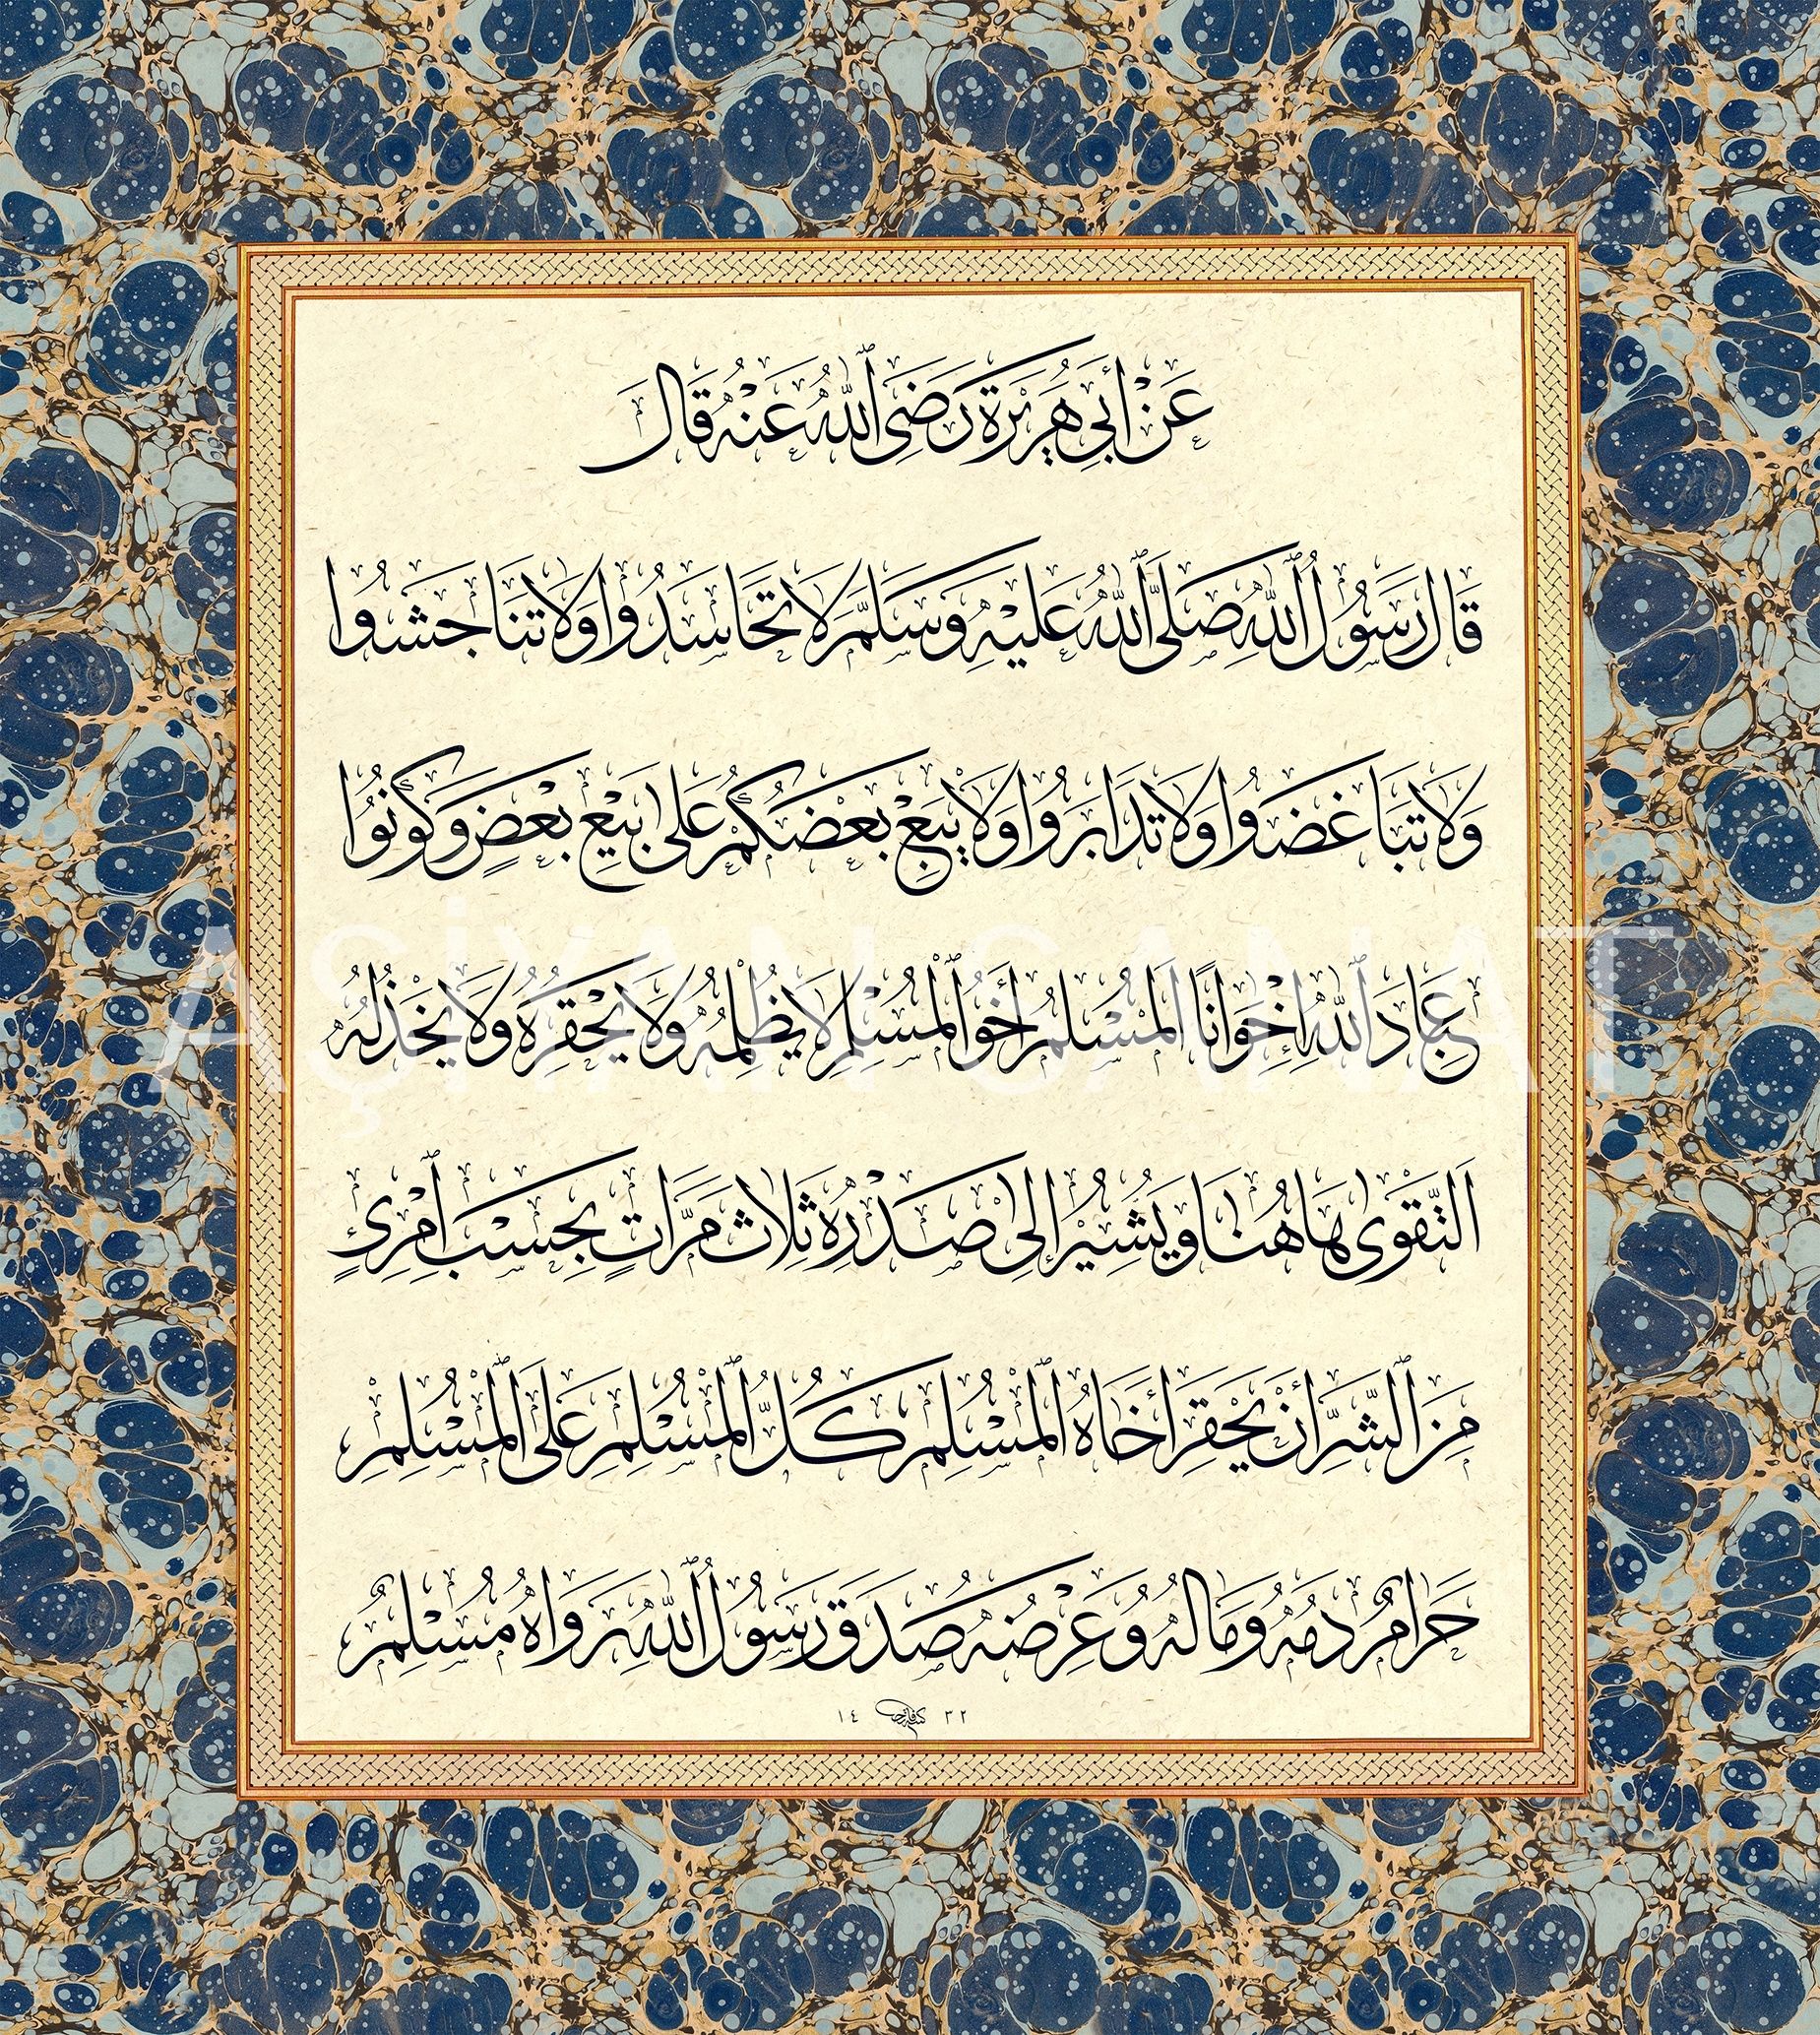 عَنْ أَبِي هُرَيْرَةَ رَضِيَ ٱللّٰهُ عَنْهُ قَالَ
قَالَ رَسُولُ ٱللّٰهِ صَلَّى ٱللّٰهُ عَلَيْهِ وَسَلَّمَ لَا تَحَاسَدُوا وَلَا تَنَاجَشُوا
وَلَا تَبَاغَضُوا وَلَا تَدَابَرُوا وَلَا يَبِعْ بَعْضُكُمْ عَلَى بَيْعِ بَعْضٍ وَكُونُوا
عِبَادَ ٱللّٰهِ إِخْوَانًا اَلْمُسْلِمُ أَخُو ٱلْمُسْلِمِ لَا يَظْلِمُهُ وَلَا يَحْقِرُهُ وَلَا يَخْذُلُهُ
اَلتَّقْوٰى هَاهُنَا وَيُشِيرُ إِلَى صَدْرِهِ ثَلَاثَ مَرَّاتٍ بِحَسْبِ ٱمْرِئٍ
مِنَ ٱلشَّرِّ أَنْ يَحْقِرَ أَخَاهُ ٱلْمُسْلِمَ كُلُّ ٱلْمُسْلِمِ عَلَى ٱلْمُسْلِمِ
حَرَامٌ دَمُهُ وَمَالُهُ وَعِرْضُهُ صَدَقَ رَسُولُ ٱللّٰهِ رَوَاهُ مُسْلِمٌ
١٤ ٣٢
AŞİYAN SANAT